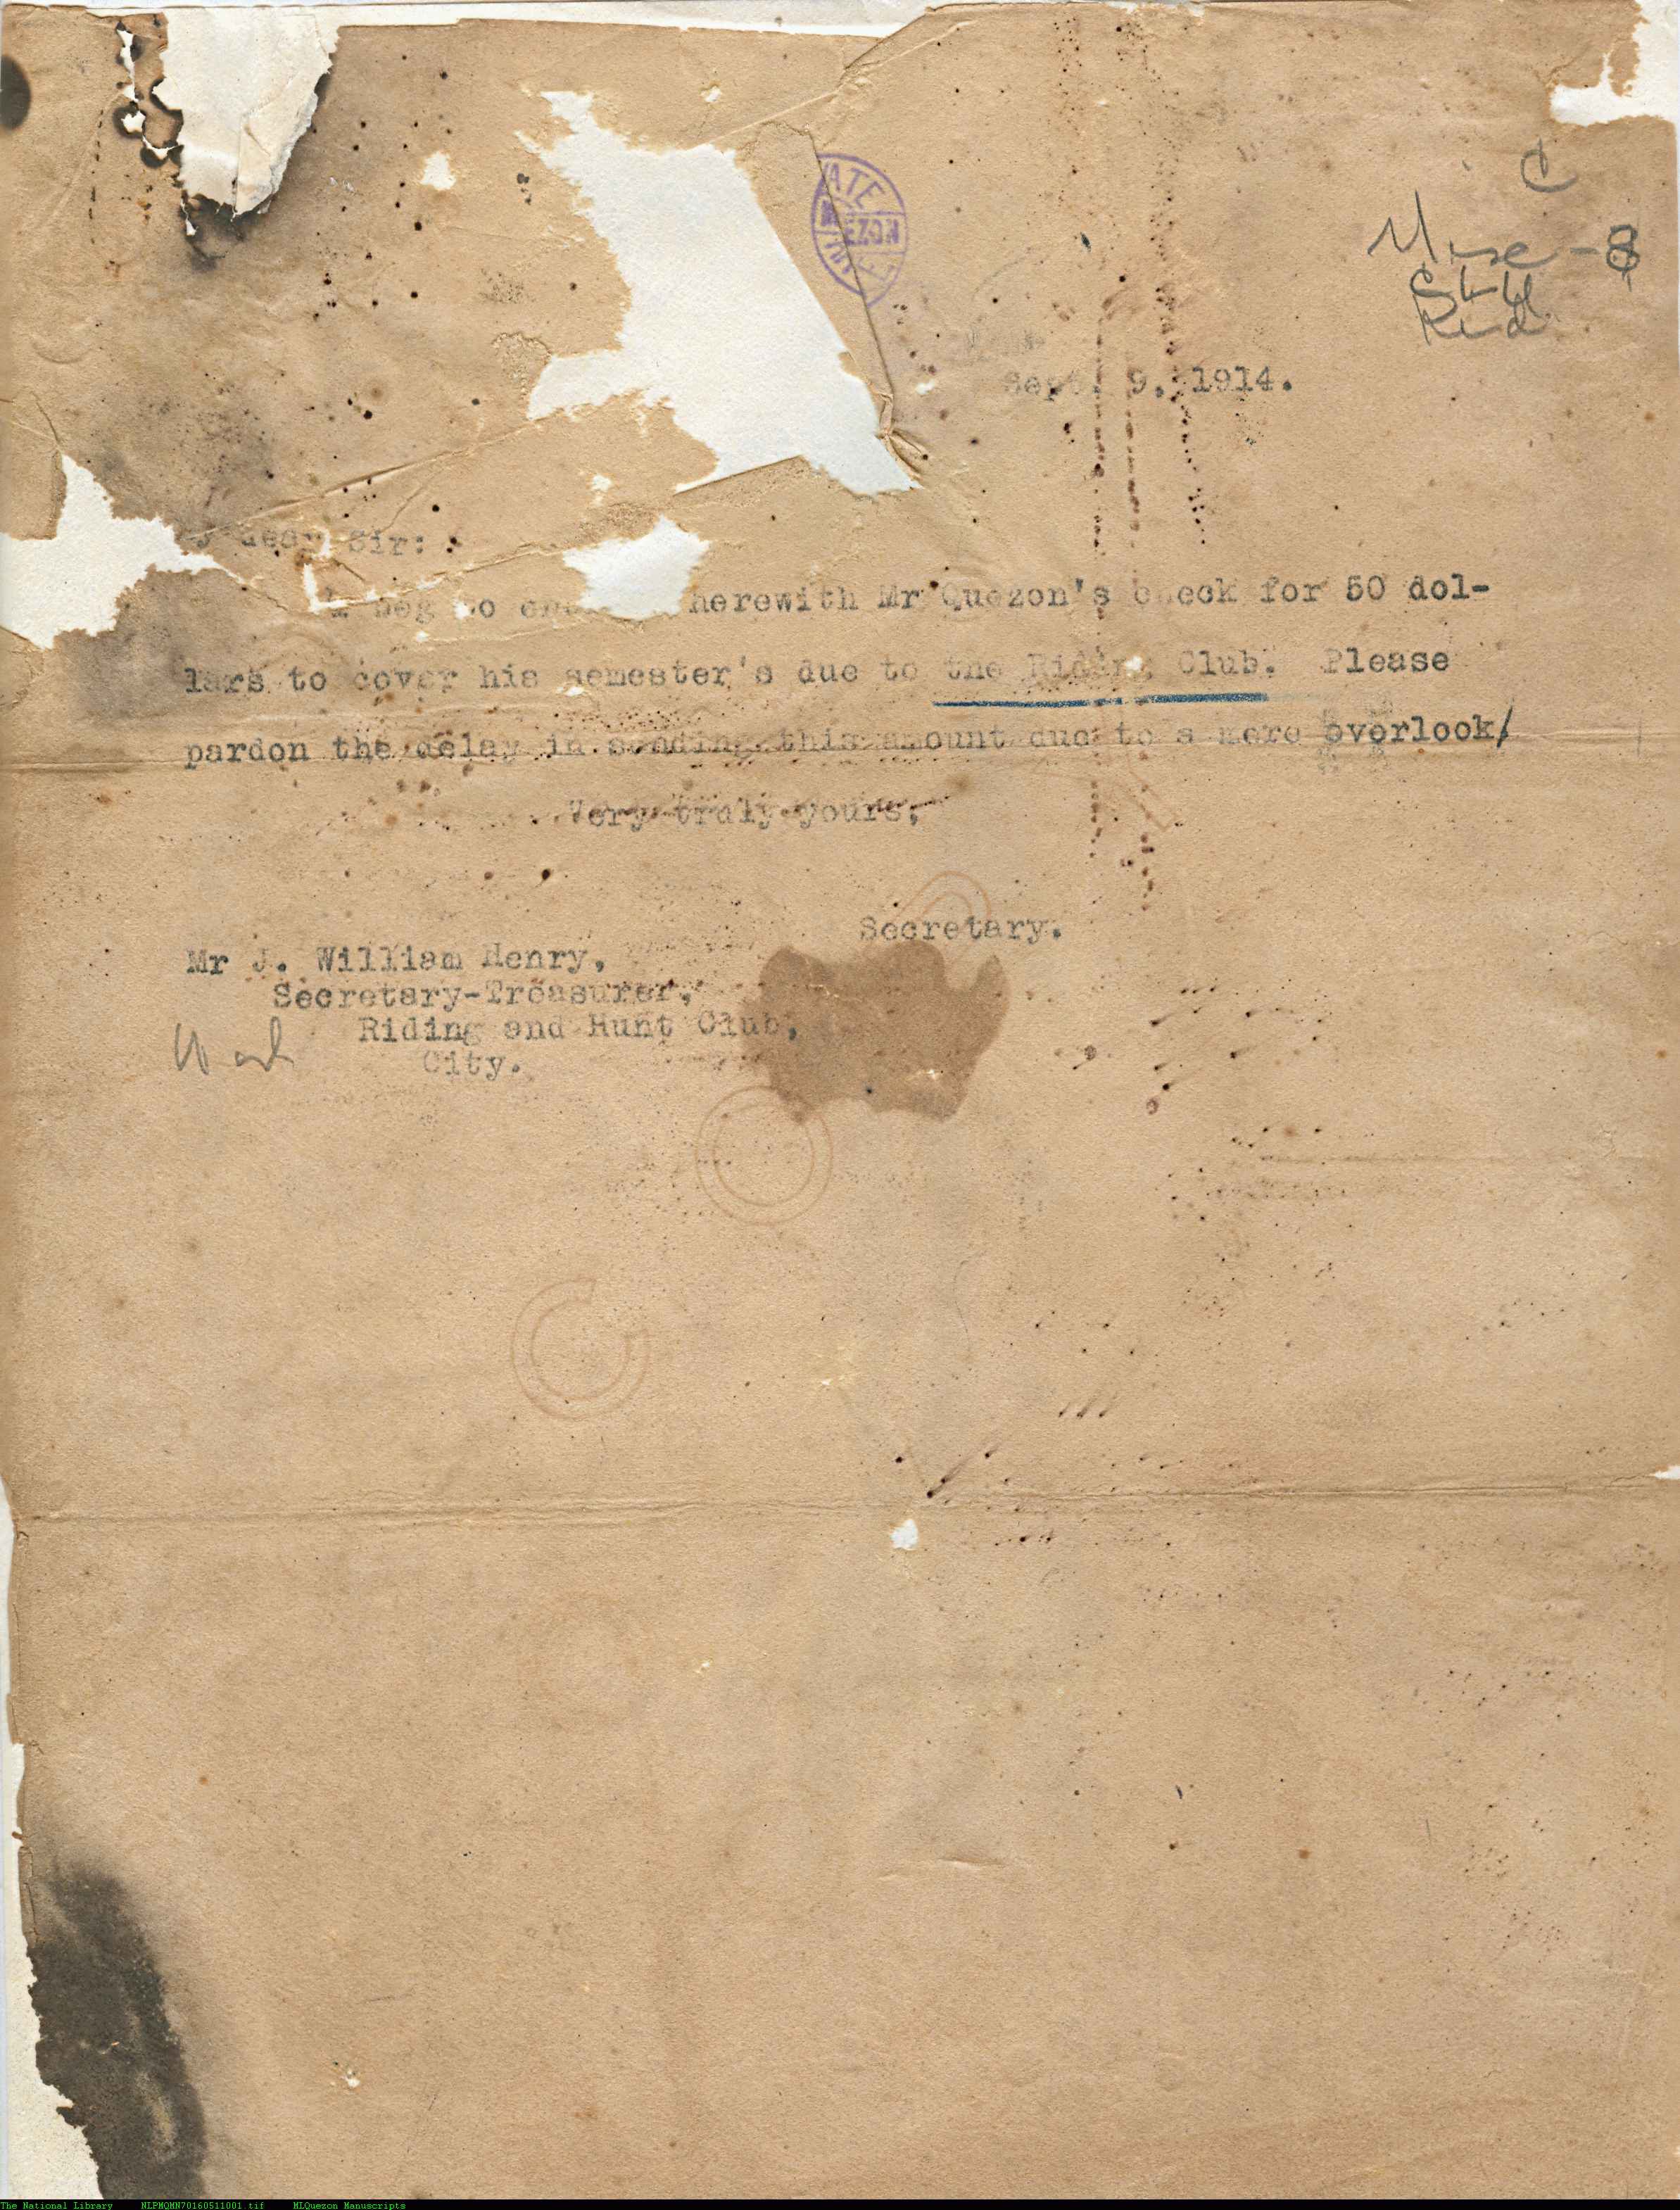 C
Misc - 8
Sept. 9, 1914.
y dear Sir:
I beg to herewith Mr Quezon's check for 50 dol-
lars to cover his semester's due to the Riding Club. Please
pardon the delay in sending this amount due to a mere overlook/
Very truly yours,
Secretary.
Mr J. William Henry,
Secretary-Treasurer,
Riding and Hunt Club,
City.
The National Library NLPMQMN70160511001.tif MLQuezon Manuscripts